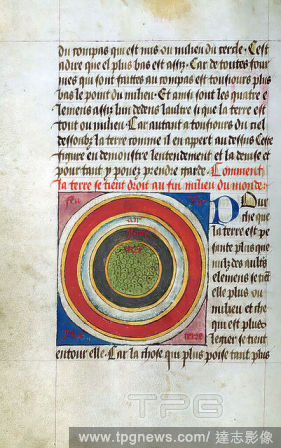 du compas qui est mis ou milieu du cercle. Cest
adire que le plus bas est assis. Car de toutes four
mes qui sont faittes au compas est tousiours plus
bas le point du milieu. Et ainsi sont les quatre e
lemens assis lun dedens laultre si que la terre est
tout ou milieu. Car autant a tousiours du ciel
dessoubz la terre comme il en apert au dessus Ceste
figure en demonstre lentendement et la
pour tant y pouez prendre garde. Comment
la terre se tient droit au fin milieu du monde.
feu
air
Pour
ce que
la terre est pe
sante plus que
nulz des aultres
elemens se tient
elle plus ou
milieu et ce
qui est plus
legier se tient
entour elle. Car la chose qui plus poise tant plus
TPG
www.tpgnews.com/達志影像